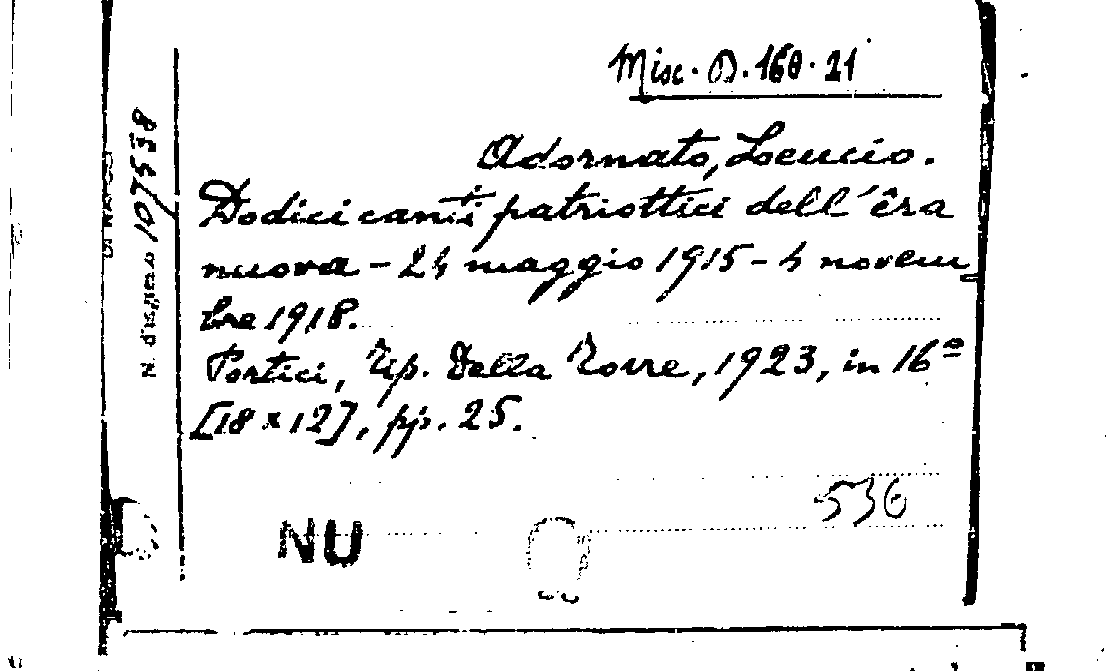 Misc. D. 160. 21
Adornato, Leucio.
Dodici canti patriottici dell'êra
nuova - 24 maggio 1915 - 4 novem
bre 1918.
Portici, Tip. Della Torre, 1923, in 16º
[18 x 12], pp. 25.
536
NU
N. d'ingresso 107538